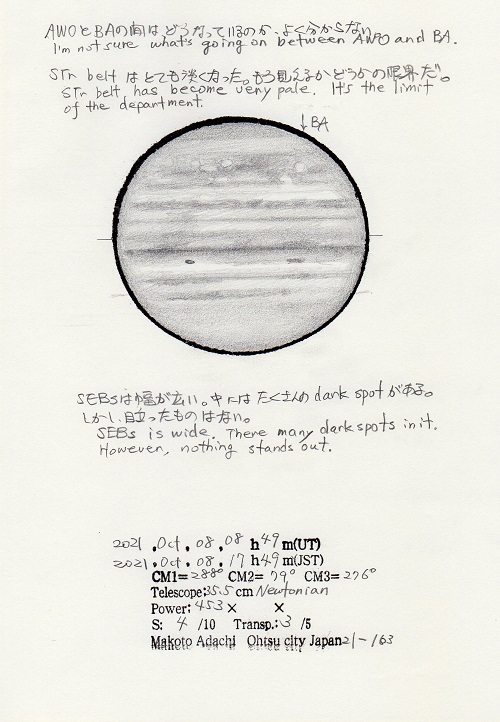 AWOとBAの間はどうなっているのか、よく分からない
I'm not sure what's going on between AWO and BA.
STr belt はとても淡くなった。もう見えるかどうかの限界だ。
STr belt has become very pale. It's the limit
of the department.
↓BA
SEBsは幅が広い。中にはたくさんの dark spotがある。
しかし、目立ったものはない。
SEBs is wide. There many dark spots in it.
However, nothing stands out.
2021 . Oct . 08 . 08 h 49 m(UT)
2021 . Oct . 08 . 17 h 49 m(JST)
CM1= 288° CM2= 79° CM3= 276°
Telescope: 35.5 cm Newtonian
Power: 453 × ×
S: 4 /10 Transp.: 3 /5
Makoto Adachi Ohtsu city Japan 21-163